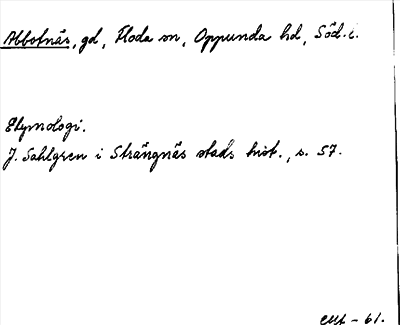 Abbotnäs, gd, Floda sn, Oppunda hd, Söd.l.
Etymologi.
J. Sahlgren i Strängnäs stads hist., s. 57.
– 61.